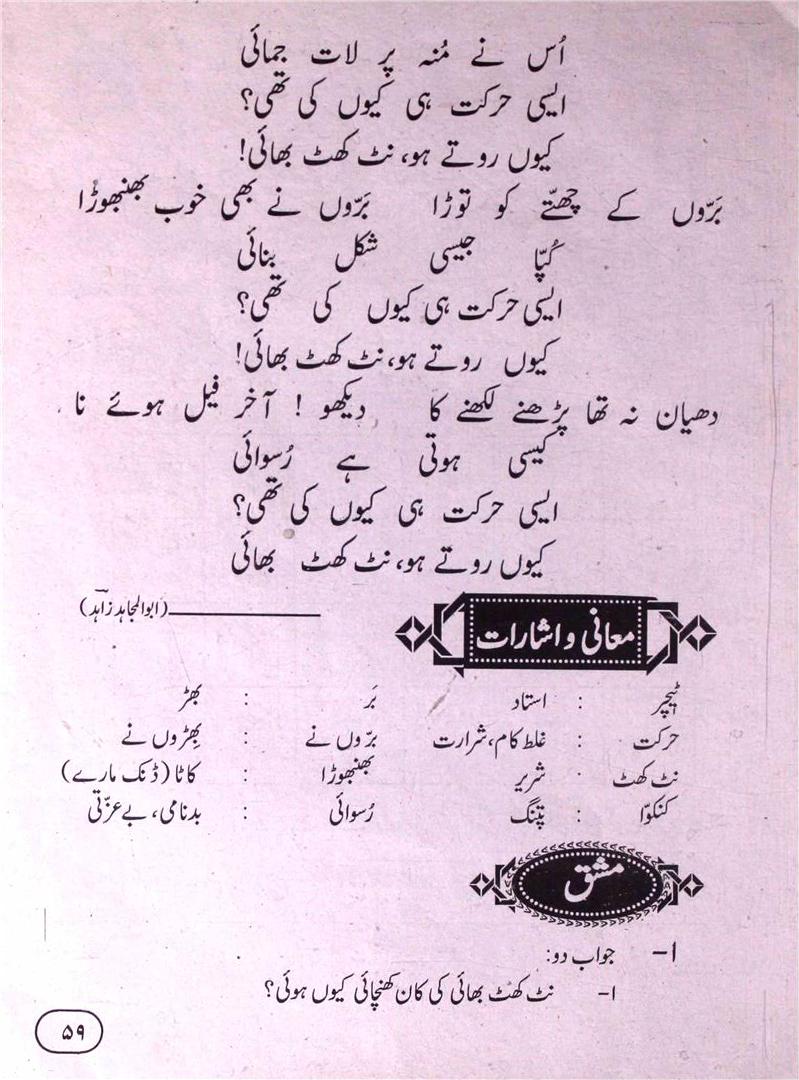 اُس نے مُنہ پر لات جمائی
ایسی حرکت ہی کیوں کی تھی؟
کیوں روتے ہو، نٹ کھٹ بھائی!
بَرّوں کے چھتّے کو توڑا بَرّوں نے بھی خوب بھنبھوڑا
کُپّا جیسی شکل بنائی
ایسی حرکت ہی کیوں کی تھی؟
کیوں روتے ہو، نٹ کھٹ بھائی!
دھیان نہ تھا پڑھنے لکھنے کا دیکھو ! آخر فیل ہوئے نا
کیسی ہوتی ہے رُسوائی
ایسی حرکت ہی کیوں کی تھی؟
کیوں روتے ہو، نٹ کھٹ بھائی
(ابوالمجاہد زاہد)
معانی و اشارات
ٹیچر : استاد بَر : بھڑ
حرکت : غلط کام، شرارت برّوں نے : بِھڑوں نے
نٹ کھٹ : شریر بھنبھوڑا : کاٹا (ڈنک مارے)
کنکوّا : پتنگ رُسوائی : بدنامی، بےعزّتی
مشق
۱- جواب دو:
۱- نٹ کھٹ بھائی کی کان کھنچائی کیوں ہوئی؟
۵۹